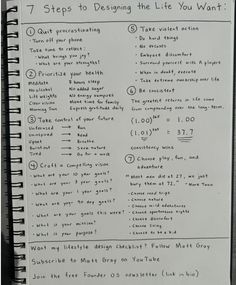 7 Steps to Designing the Life You Want:
① Quit procrastinating
- Turn off your phone
Take time to reflect:
- What brings you joy?
- What are your strengths?
② Prioritize your health
Meditate
No alcohol
Lift weights
Clear vision
Morning Sun
More steps
No added sugar
No energy vampires
Make time for family
Express gratitude daily
③ Take control of your future
Uninformed → Read
Uninspired → Read
Upset → Breathe
Burnt out → Solve nature
Tired → Go for a walk
④ Craft a compelling vision
- What are your 10 year goals?
- What are your 3 year goals?
- What are your 1 year goals?
- What are your day-to-day goals?
- What are your goals this week?
- What is your mission?
- What is your purpose?
⑤ Take violent action
- Do hard things
- No excuses
- Embrace discomfort
- Surround yourself with A players
- When in doubt, execute
- Take extreme ownership over life
⑥ Be consistent
The greatest returns in life come
from compounding over the long-term.
(1.00)³⁶⁵ = 1.00
(1.01)³⁶⁵ = 37.7
consistency wins
⑦ Choose play, fun, and
adventure
"Most men die at 27, we just
bury them at 72." - Mark Twain
- Choose road trips
- Choose nature
- Choose wild adventures
- Choose spontaneous nights
- Choose discomfort
- Choose living
- Choose to be a kid
Want my lifestyle design checklist? Follow Matt Gray
Subscribe to Matt Gray on YouTube
Join the free Founder OS newsletter (link in bio)